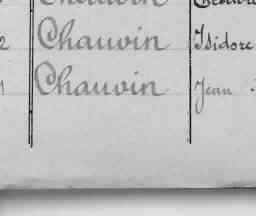 2 Chauvin Isidore
Chauvin Jean